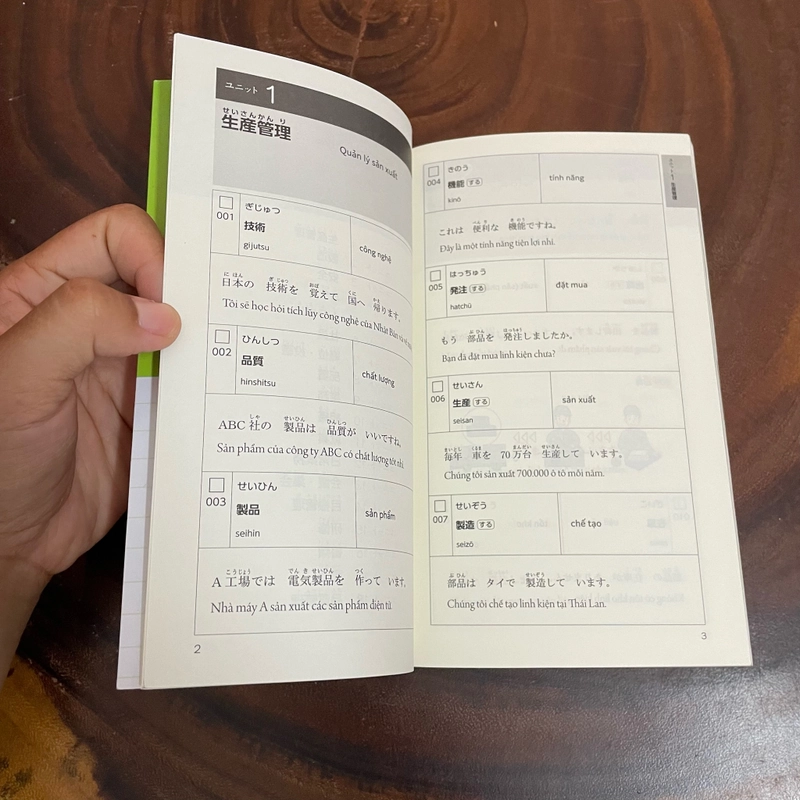 ユニット 1
せいさんかんり
生産管理
Quản lý sản xuất
001
ぎじゅつ
技術
gijutsu
công nghệ
にほん ぎじゅつ おぼ くに かえ
日本の 技術を 覚えて 国へ 帰ります。
Tôi sẽ học hỏi tích lũy công nghệ của Nhật Bản
002
ひんしつ
品質
hinshitsu
chất lượng
しゃ せいひん ひんしつ
ABC 社の 製品は 品質が いいですね。
Sản phẩm của công ty ABC có chất lượng tốt nhỉ.
003
せいひん
製品
seihin
sản phẩm
こうじょう でんきせいひん つく
A 工場では 電気製品を 作って います。
Nhà máy A sản xuất các sản phẩm điện tử.
2
ユニット 1 生産管理
004
きのう
機能 する
kinō
tính năng
べんり きのう
これは 便利な 機能ですね。
Đây là một tính năng tiện lợi nhỉ.
005
はっちゅう
発注 する
hatchū
đặt mua
ぶひん はっちゅう
もう 部品を 発注しましたか。
Bạn đã đặt mua linh kiện chưa?
006
せいさん
生産 する
seisan
sản xuất
まいとし くるま まんだい せいさん
毎年 車を 70 万台 生産して います。
Chúng tôi sản xuất 700.000 ô tô mỗi năm.
007
せいぞう
製造 する
seizō
chế tạo
ぶひん せいぞう
部品は タイで 製造して います。
Chúng tôi chế tạo linh kiện tại Thái Lan.
3